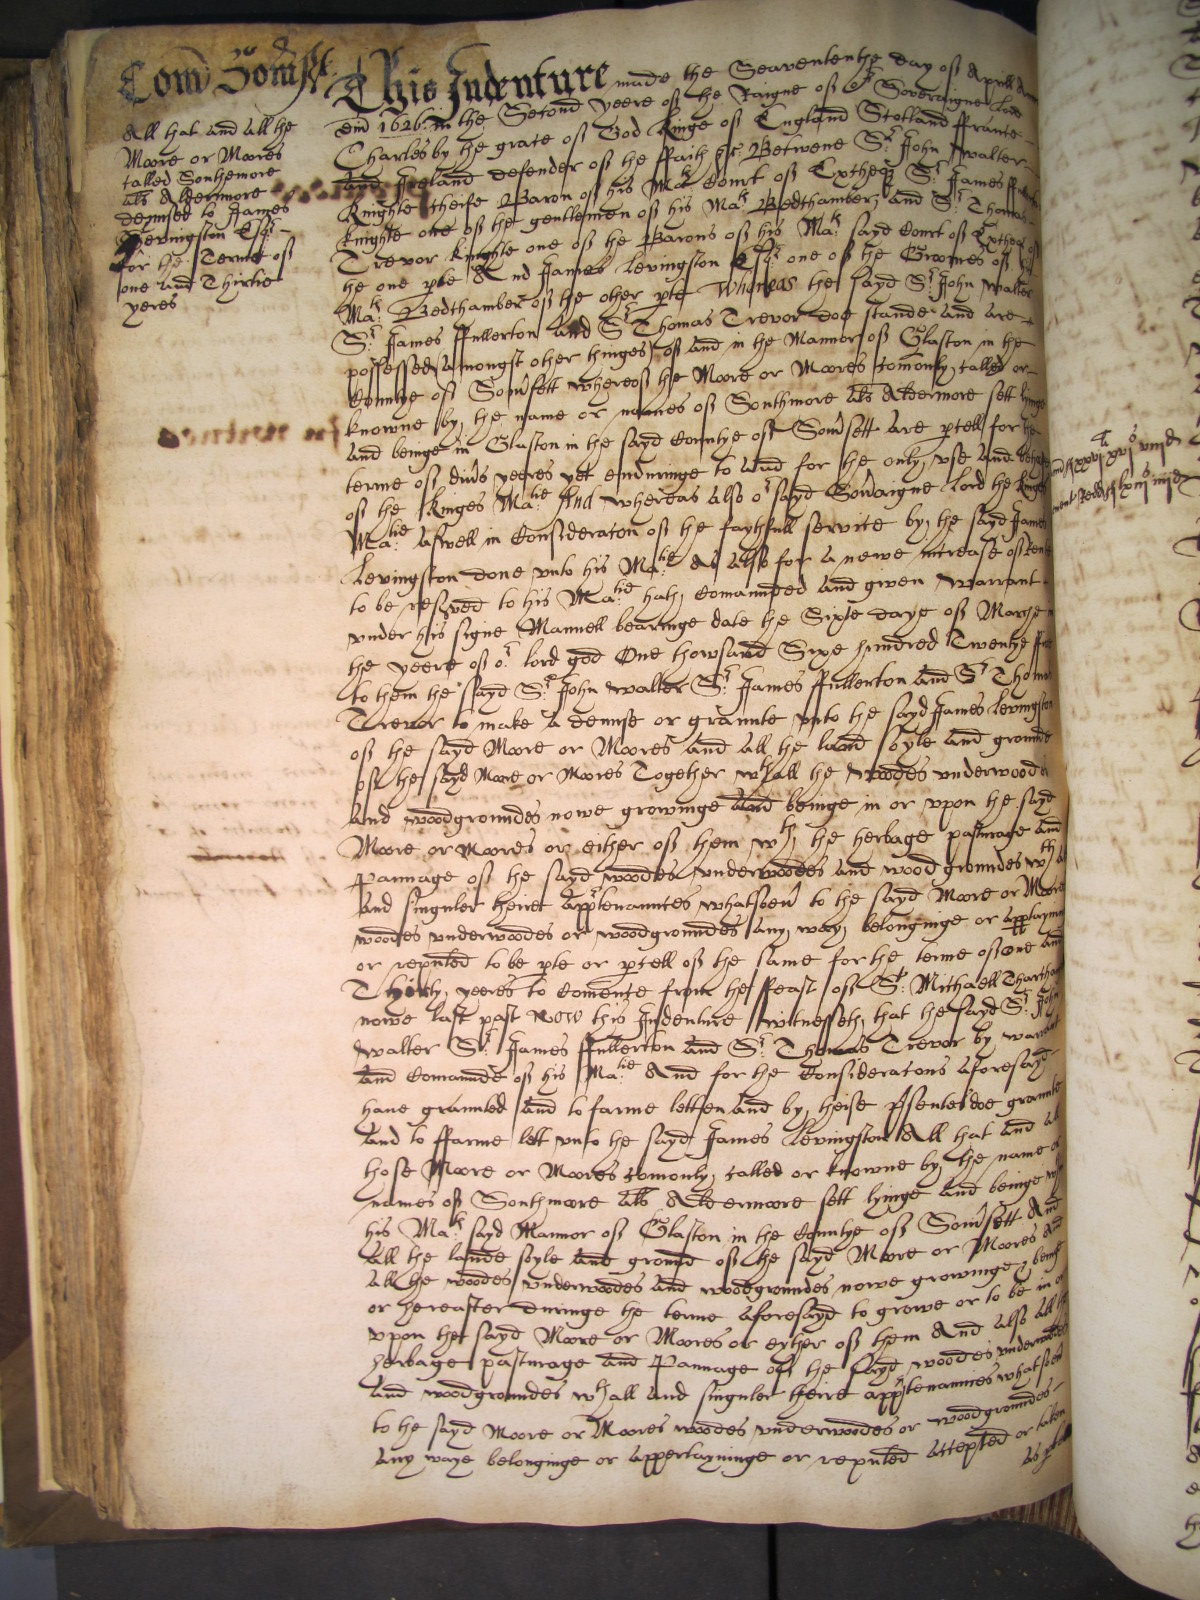 Com Somst
All that and all the
Moore or Moores
called Southemore
als Aldermore
demised to James
Levingston Esqr
for the Terme of
one and Thirtie
yeres
This Indenture made the Seaventenths day of Aprill
Dm̄ 1626. in the Second yeere of the Raigne of or Soveraigne Lord
Charles by the grace of God Kinge of England Scotland ffrance
and Ireland defender of the ffaith &c. Betwene Sr John Walter
Knighte cheife Baron of his Mats Court of Exchequer Sr James
knighte one of the gentlemen of his Mats Bedchamber, and Sr Thomas
Trevor Knighte one of the Barons of his Mats sayd Court of
the one pte And James Levingston Esqr one of the Groomes of his
Mats Bedchamber of the other pte Whereas the sayd Sr John Walter
Sr James ffullerton and Sr Thomas Trevor doe stande and are
possessed (amongst other thinges) of and in the Mannor of Glaston in the
Countye of Somsett whereof the Moore or Moores comonly called or
knowne by the name or names of Southmore als Aldermore sett
and beinge in Glaston in the sayd Countye of Somsett are pcell for the
terme of divs yeeres yet enduringe to and for the only use and
of the Kinges Matie And whereas also or sayd Sovaigne Lord the Kinges
Matie aswell in Consideracon of the faythfull service by the sayd James
Levingston done unto his Matie As also for a newe increase of
to be resved to his Matie hath Comaunded and given Warrant
under his signe Mannell bearinge date the Sixte daye of Marche
the yeere of or lord god One thowsand Sixe hundred Twentye
to them the sayd Sr John Walter Sr James ffullerton and Sr Thomas
Trevor to make a demise or graunte unto the sayd James Levingston
of the sayd Moore or Moores and all the land soyle and grounde
of the sayd Moore or Moores Together wth all the woodes underwoodes
and woodgroundes nowe growinge and beinge in or upon the sayd
Moore or Moores or either of them wth the herbage pasturage and
Pannage of the sayd woodes underwoodes and wood groundes wth
and singuler theire apptenaunces whatsoev to the sayd Moore or Moores
woodes underwoodes or woodgroundes any way belonginge or
or reputed to be pte or pcell of the same for the terme of one and
Thirty yeeres to Comence from the ffeast of St Michaell Tharchangell
nowe last past Now this Indenture witnesseth that the sayd Sr John
Walter Sr James ffullerton and Sr Thomas Trevor by warrant
and Comaunde of his Matie And for the Consideracons aforesayd
have graunted and to farme letten and by theise psentes doe graunte
and to ffarme lett unto the sayd James Levingston All that and all
those Moore or Moores comonly called or knowne by the name or
names of Southmoore als Aldermoore sett lyinge and beinge
his Mats sayd Mannor of Glaston in the Countye of Somsett And
all the lande soyle and ground of the sayd Moore or Moores And
all the woodes underwoodes and woodgroundes nowe growinge
or hereafter duringe the terme aforesayd to growe or to be in or
upon the sayd Moore or Moores or eyther of them And also all the
herbage pasturage and Pannage of the sayd woodes underwoodes
and woodgroundes wth all and singuler theire apptenaunces whatsoev
to the sayd Moore or Moores woodes underwoodes or woodgroundes
any waye belonginge or appertayninge or reputed accepted or taken
as pte